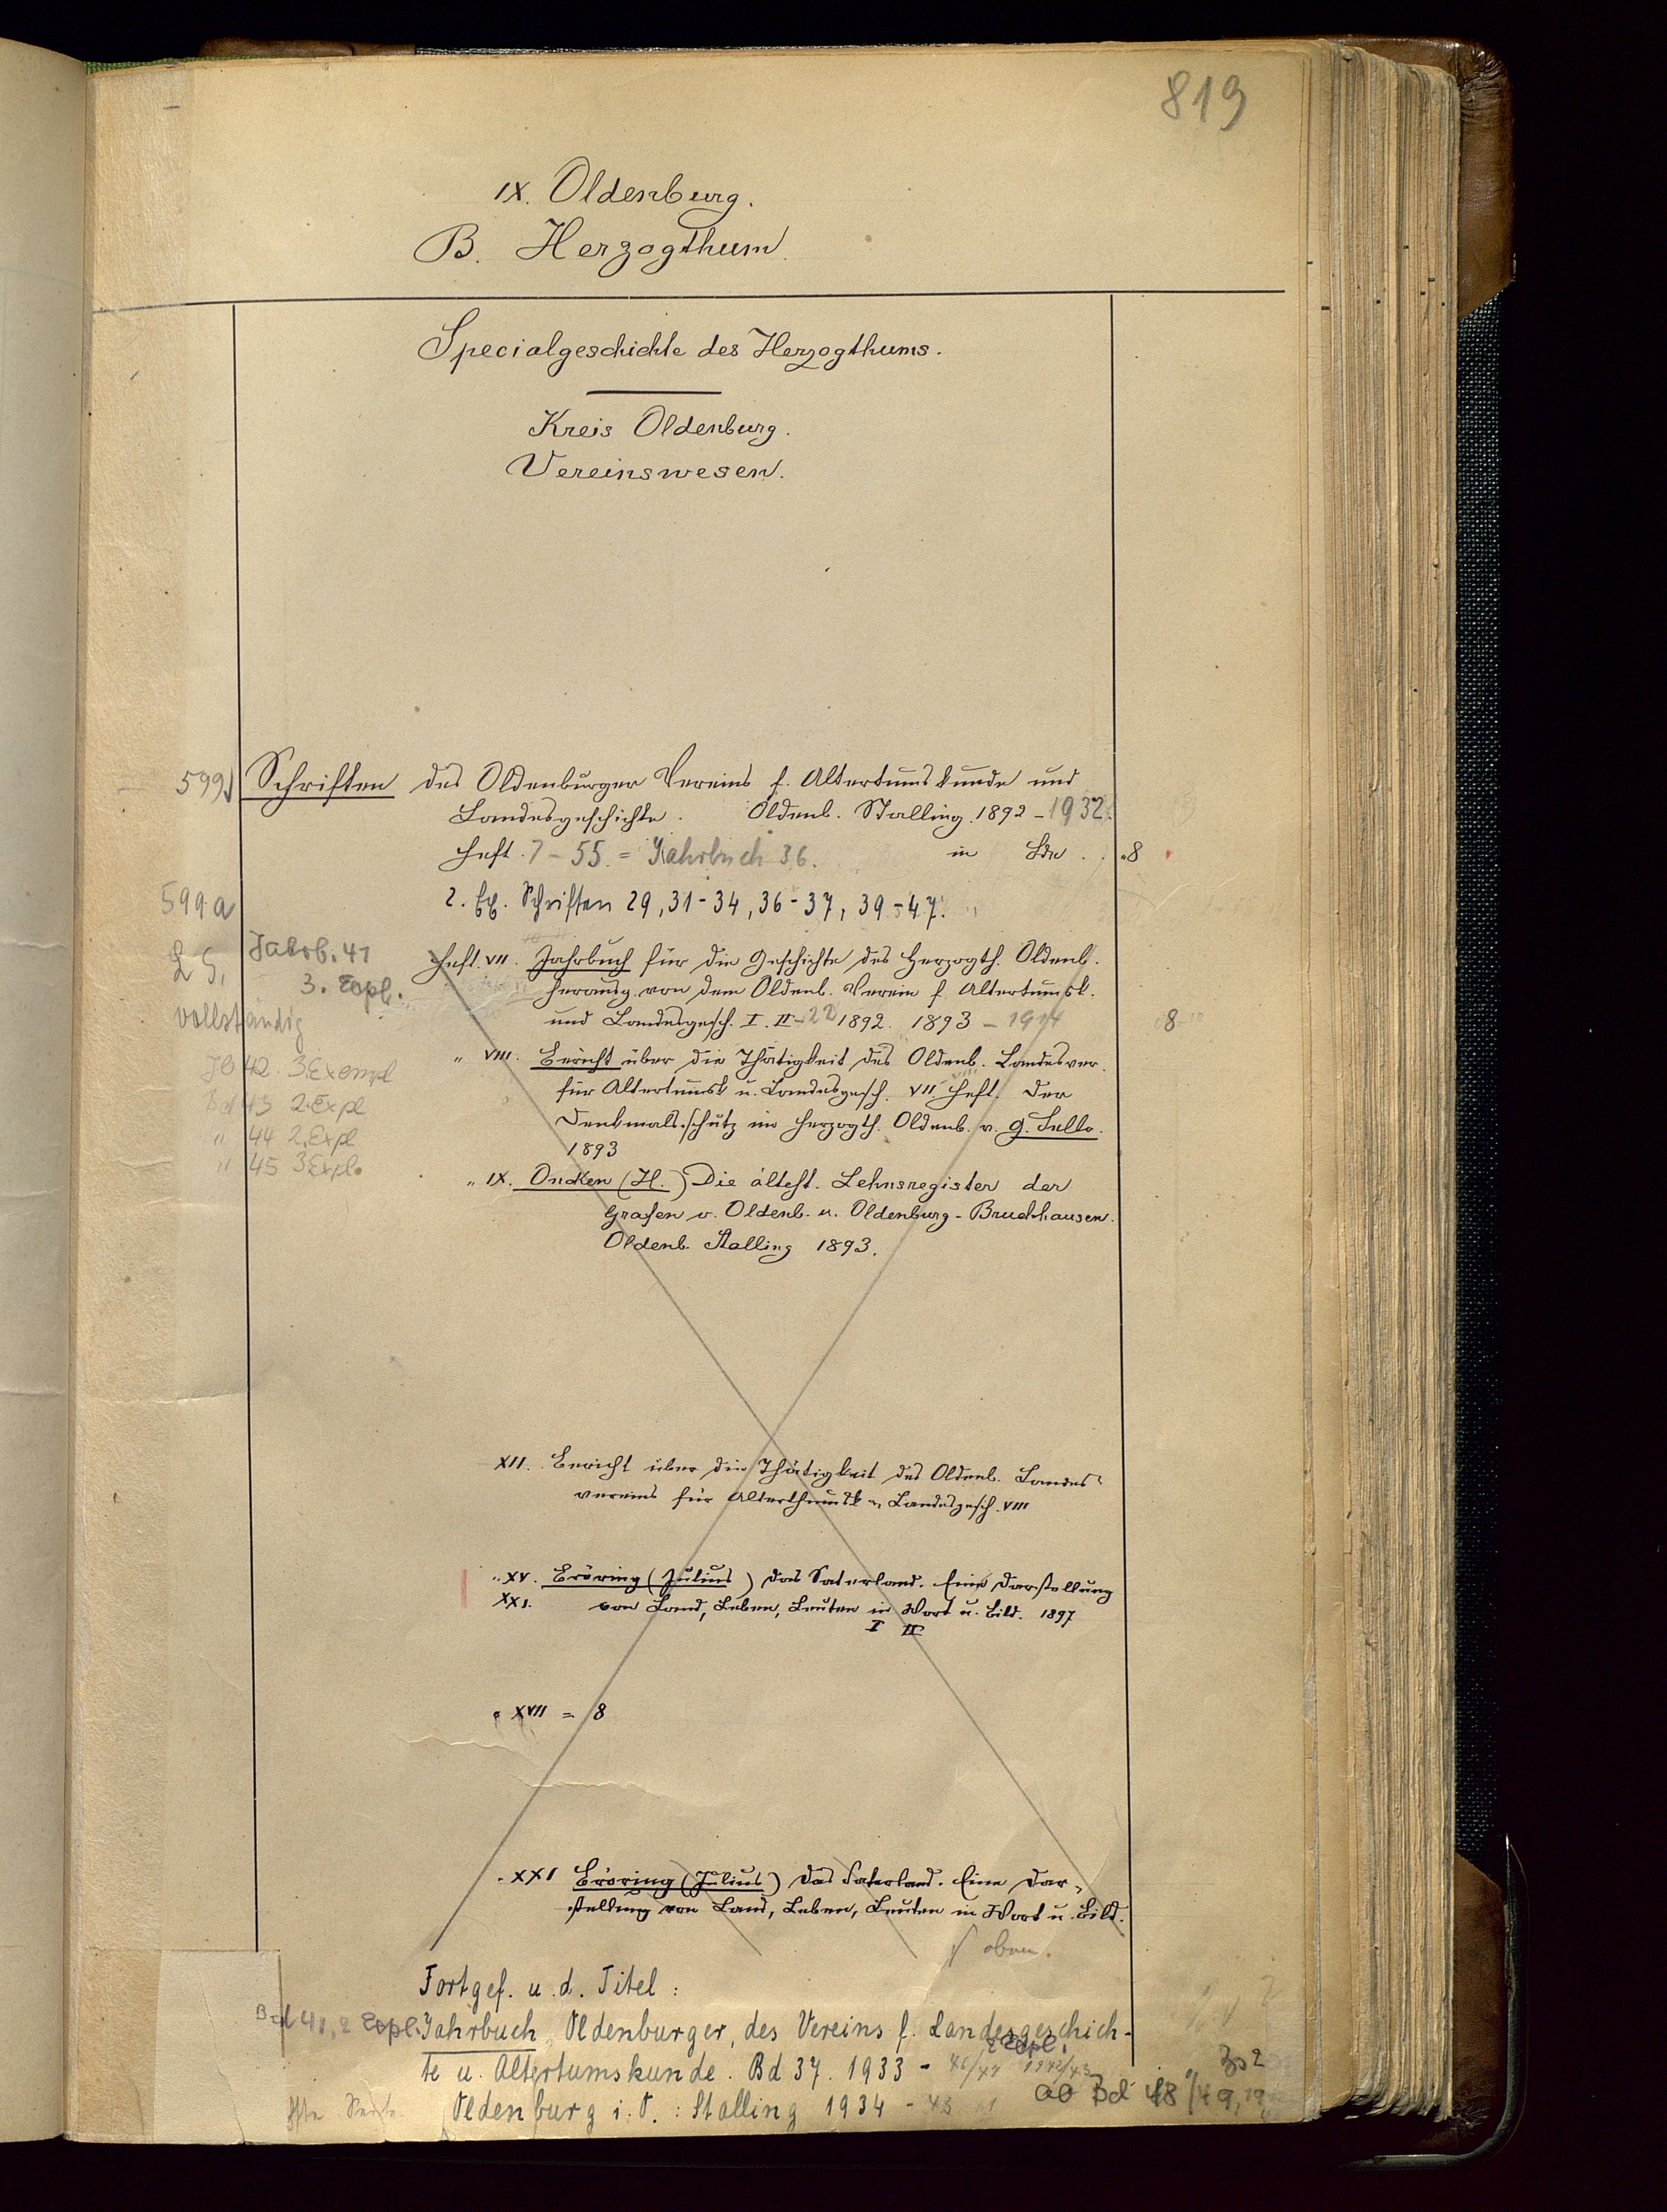 819
IX. Oldenburg.
B. Herzogthum.
Specialgeschichte des Herzogthums.
Kreis Oldenburg.
Vereinswesen.
599 Schriften des Oldenburger Vereins f. Altertumskunde und
Landesgeschichte. Oldenb. Stalling. 1892 - 1932.
Heft. 7 - 55. = Jahrbuch 36. in Bde. 8
599a 2. Ex. Schriften 29, 31-34, 36-37, 39-47.
LS. Jahrb. 41
3. Expl.
vollständig
Jb 42. 3. Exempl
Bd 43 2. Expl
" 44 2. Expl
" 45 3 Expl.
Heft. VII. Jahrbuch für die Geschichte des Herzogth. Oldenb.
herausg. von dem Oldenb. Verein f. Altertumsk.
und Landesgesch. I. II - 22 1892. 1893 - 1914 8
" VIII. Bericht über die Thätigkeit des Oldenb. Landesver.
für Altertumsk u. Landesgesch. VII. Heft. Der
Denkmalsschutz im Herzogth. Oldenb. v. G. Sello.
1893
" IX. Oncken (H.) Die ältest. Lehnsregister der
Grafen v. Oldenb. u. Oldenburg - Bruchhausen.
Oldenb. Stalling 1893.
XII. Bericht über die Thätigkeit des Oldenb. Landes-
vereins für Alterthumsk u. Landesgesch. VIII
" XV. Bröring (Julius) Das Saterland. Eine Darstellung
XXI. von Land, Leben, Leuten in Wort u. Bild. 1897
I II
" XVII = 8
" XXI Bröring (Julius) Das Saterland. Eine Dar-
stellung von Land, Leben, Leuten in Wort u. Bild.
s oben.
Fortgef. u. d. Titel:
Bd 41, 2 Expl. Jahrbuch, Oldenburger, des Vereins f. Landesgeschich-
2 Expl.
te u. Altertumskunde. Bd 37. 1933 - 46/47 1942/43
Oldenburg i. O. : Stalling 1934 - 43
ab Bd 48/49,